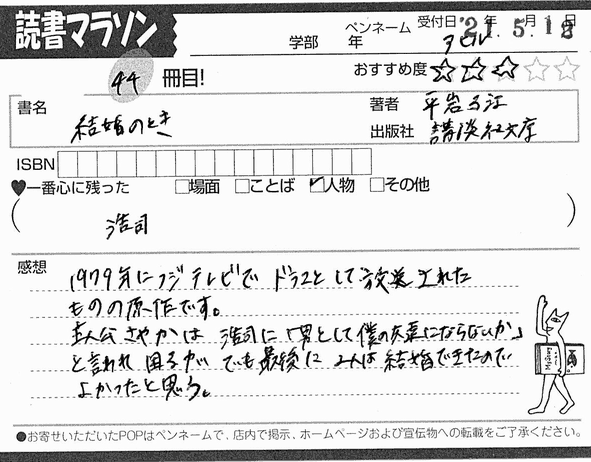 読書マラソン
学部 年 ペンネーム アヒル 受付日 '21年 5月 18日
44 冊目!
おすすめ度 ☆☆☆☆☆
書名 結婚のとき
著者 平岩弓江
出版社 講談社文庫
ISBN
♥一番心に残った □場面 □ことば ☑人物 □その他
( 浩司 )
感想
1979年にフジテレビで ドラマとして放送された
ものの原作です。
主人公さやかは 浩司に「男として僕の友達にならないか」
と言われ 困るが でも最後に 2人は 結婚できたので
よかったと思う。
●お寄せいただいたPOPはペンネームで、店内で掲示、ホームページおよび宣伝物への転載をご了承ください。